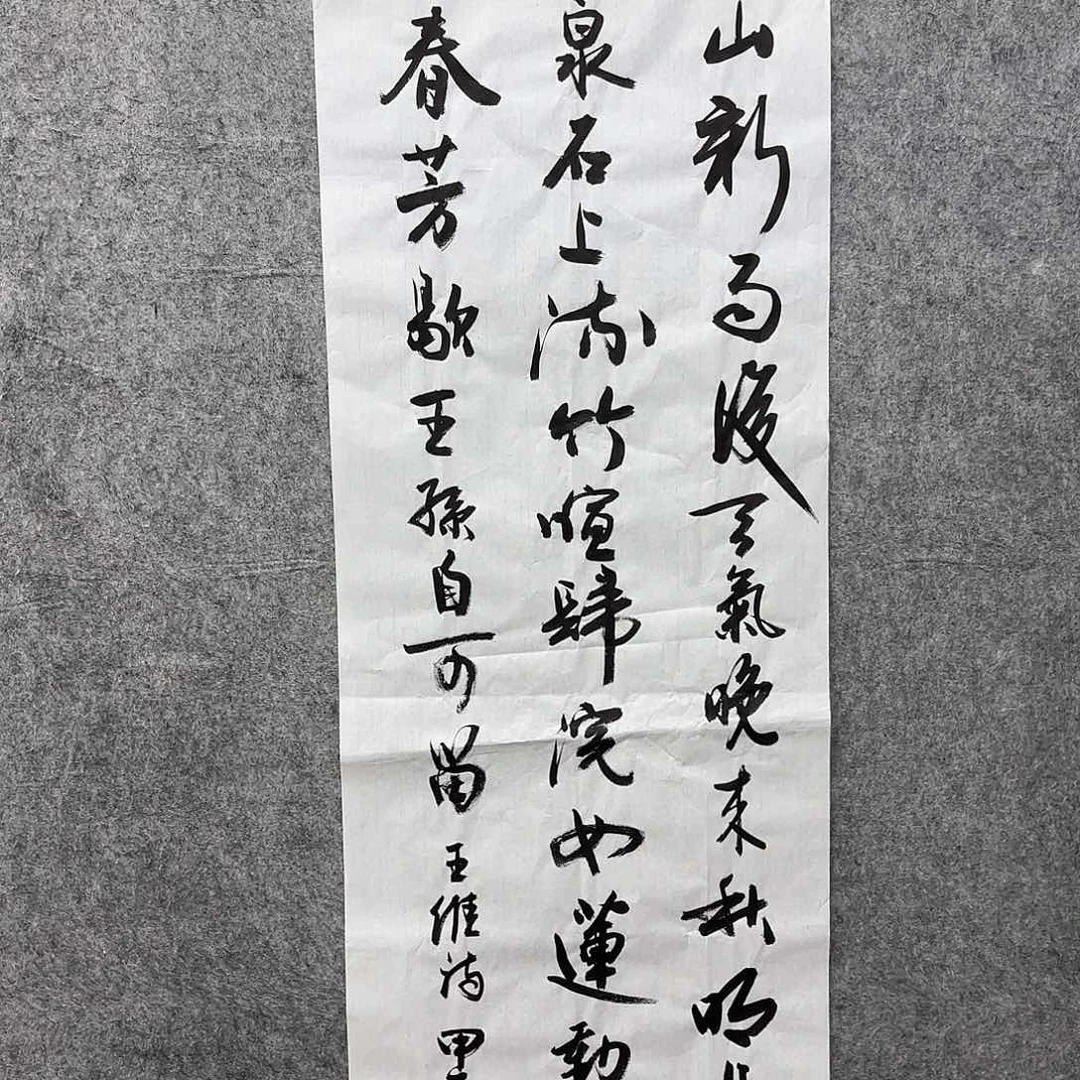 山新雨後天氣晚来秋明
泉石上流竹喧歸浣女蓮動
春芳歇王孫自可留王維詩